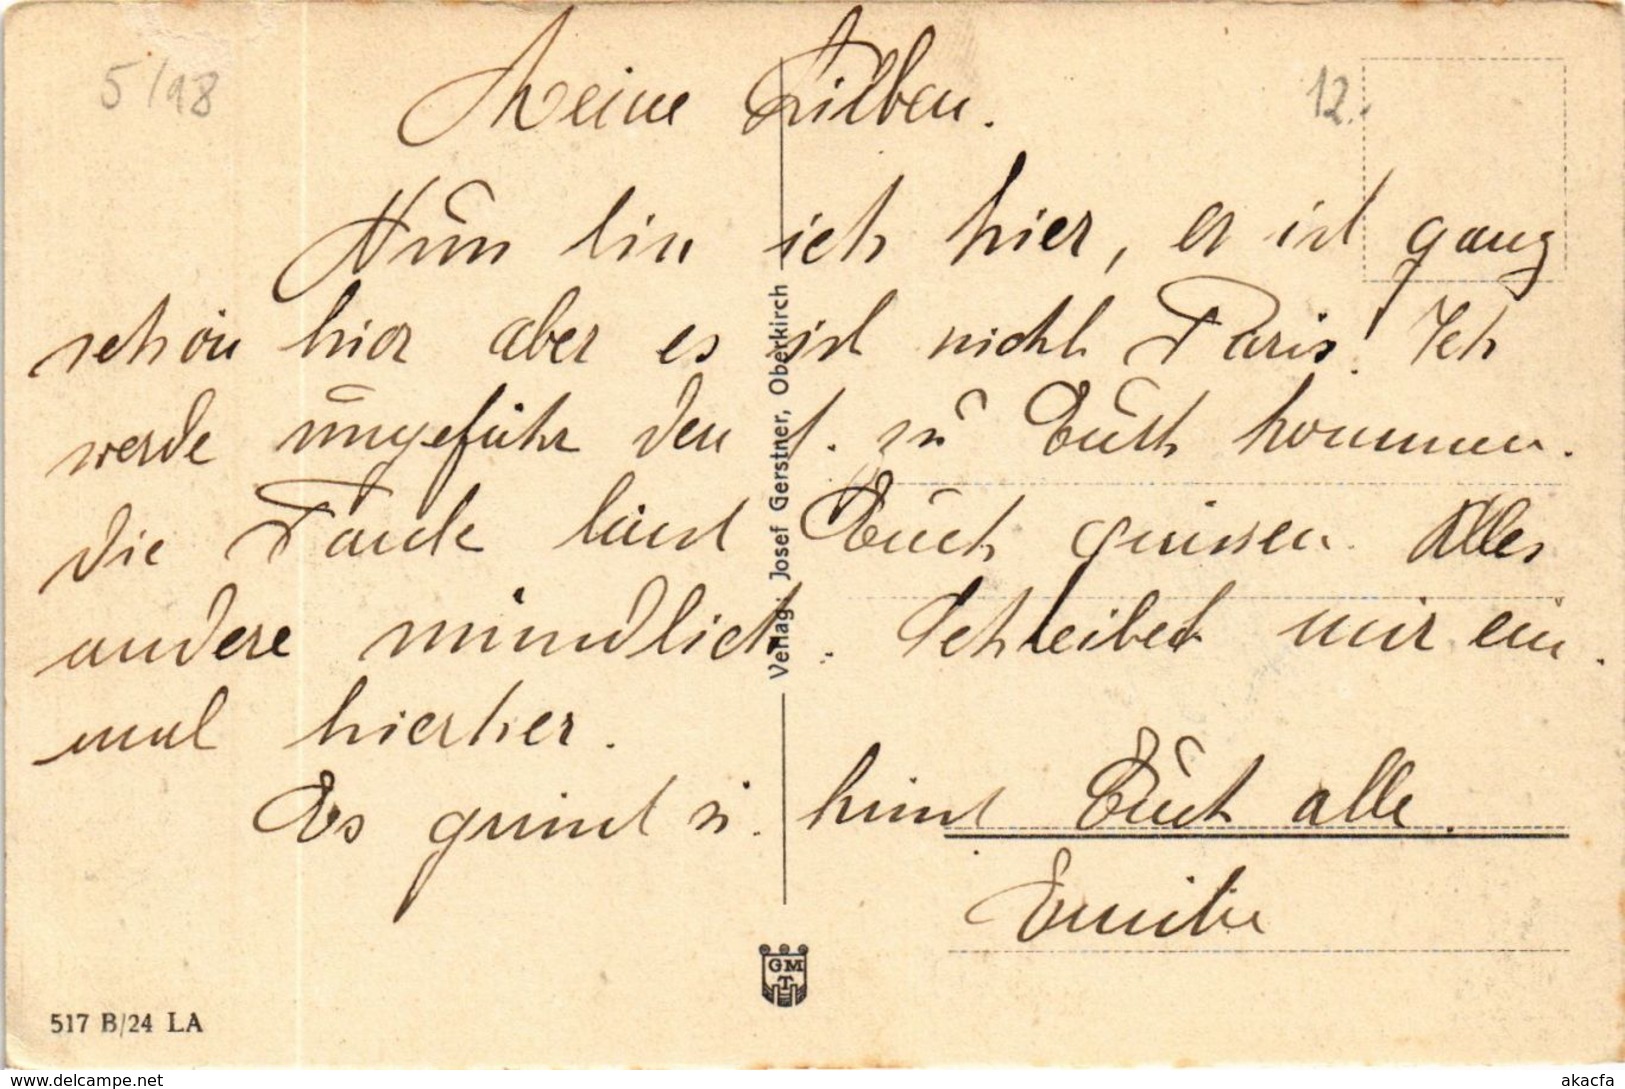 5/98
12.
Meine Lieben.
Nun bin ich hier, es ist ganz
schön hier aber es ist nicht Paris! Ich
werde ungefähr den 1. zu Euch kommen.
die Tante lässt Euch grüssen. Alles
andere mündlich. Schreibet mir ein
mal hierher.
Es grüsst u. küsst Euch alle.
Emilie
Verlag: Josef Gerstner, Oberkirch
GMT
517 B/24 LA
www.delcampe.net
akacfa